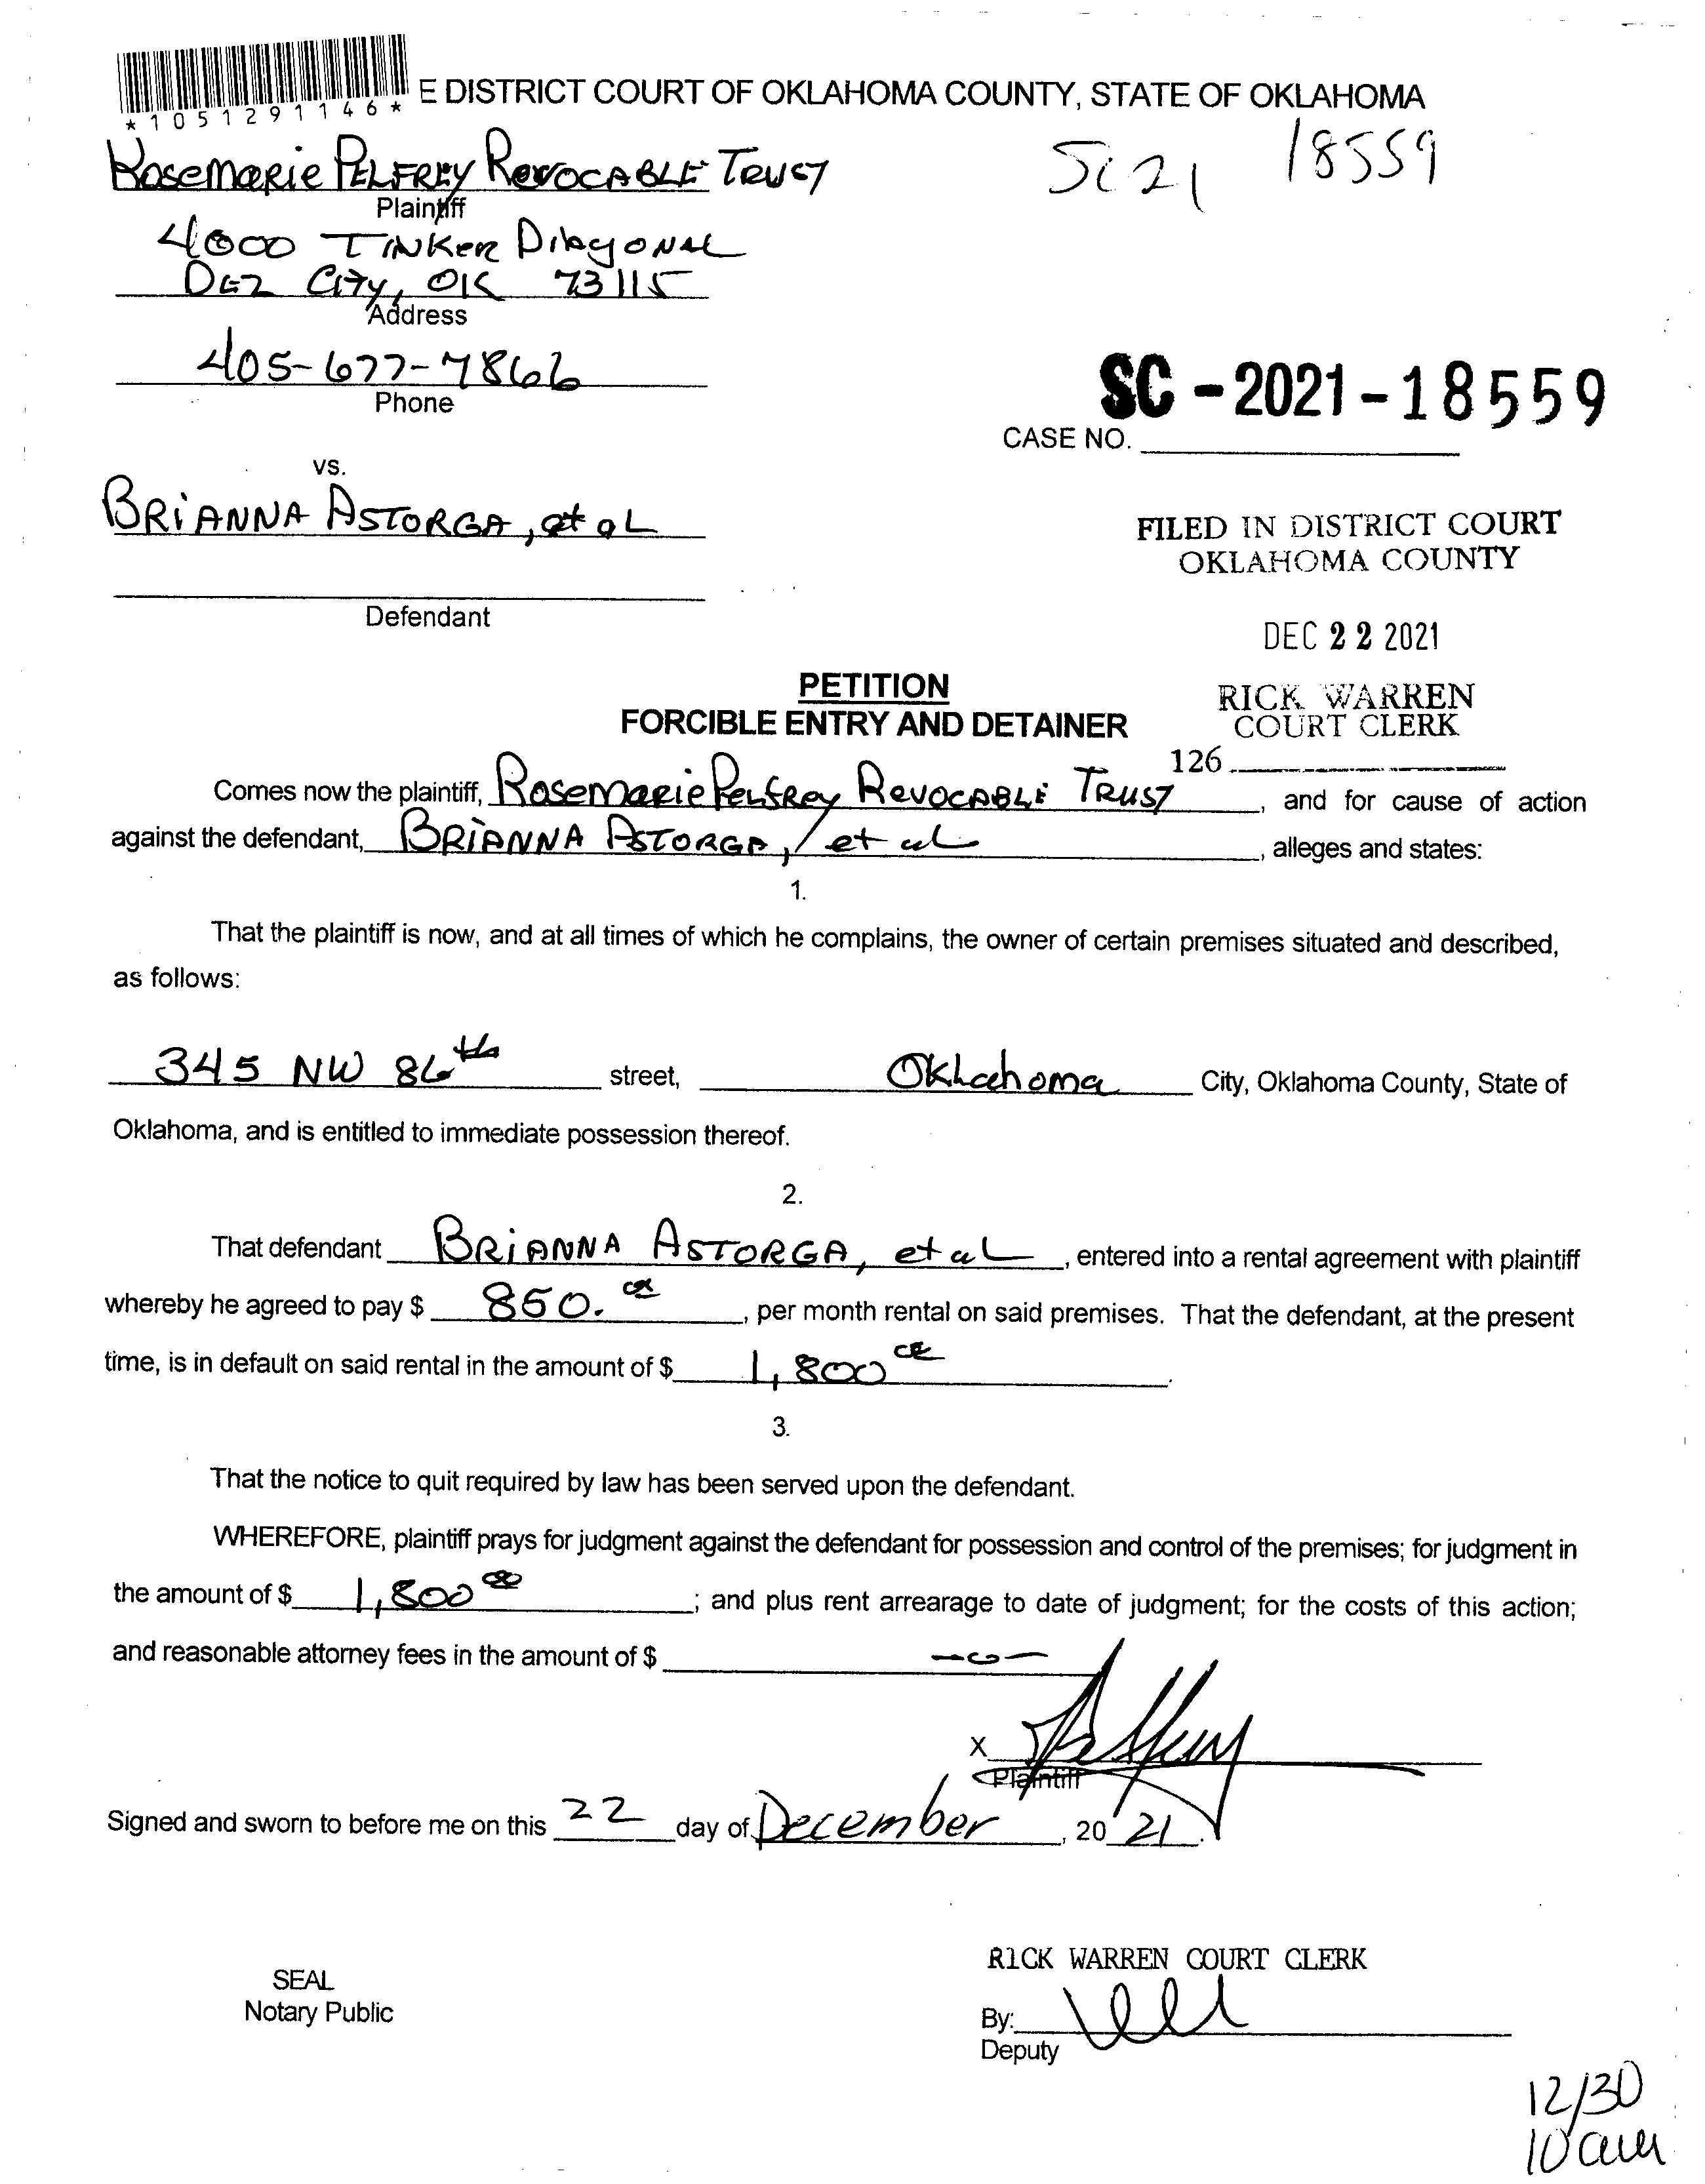 *1051291146*
E DISTRICT COURT OF OKLAHOMA COUNTY, STATE OF OKLAHOMA
Rosemarie Pelfrey Revocable Trust
SC 21 18559
Plaintiff
4000 Tinker Diagonal
Del City, OK 73115
Address
405-677-7866
Phone
SC-2021-18559
CASE NO.
vs.
Brianna Astorga, et al
Defendant
FILED IN DISTRICT COURT
OKLAHOMA COUNTY
DEC 22 2021
RICK WARREN
COURT CLERK
126
PETITION
FORCIBLE ENTRY AND DETAINER
Comes now the plaintiff, Rosemarie Pelfrey Revocable Trust, and for cause of action
against the defendant, Brianna Astorga, et al, alleges and states:
1.
That the plaintiff is now, and at all times of which he complains, the owner of certain premises situated and described,
as follows:
345 NW 86th street, Oklahoma City, Oklahoma County, State of
Oklahoma, and is entitled to immediate possession thereof.
2.
That defendant Brianna Astorga, et al, entered into a rental agreement with plaintiff
whereby he agreed to pay $ 850.00, per month rental on said premises. That the defendant, at the present
time, is in default on said rental in the amount of $ 1,800 00.
3.
That the notice to quit required by law has been served upon the defendant.
WHEREFORE, plaintiff prays for judgment against the defendant for possession and control of the premises; for judgment in
the amount of $ 1,800 00; and plus rent arrearage to date of judgment; for the costs of this action;
and reasonable attorney fees in the amount of $ -0-
X
Plaintiff
Signed and sworn to before me on this 22 day of December, 20 21.
SEAL
Notary Public
RICK WARREN COURT CLERK
By:
Deputy
12/30
10 am